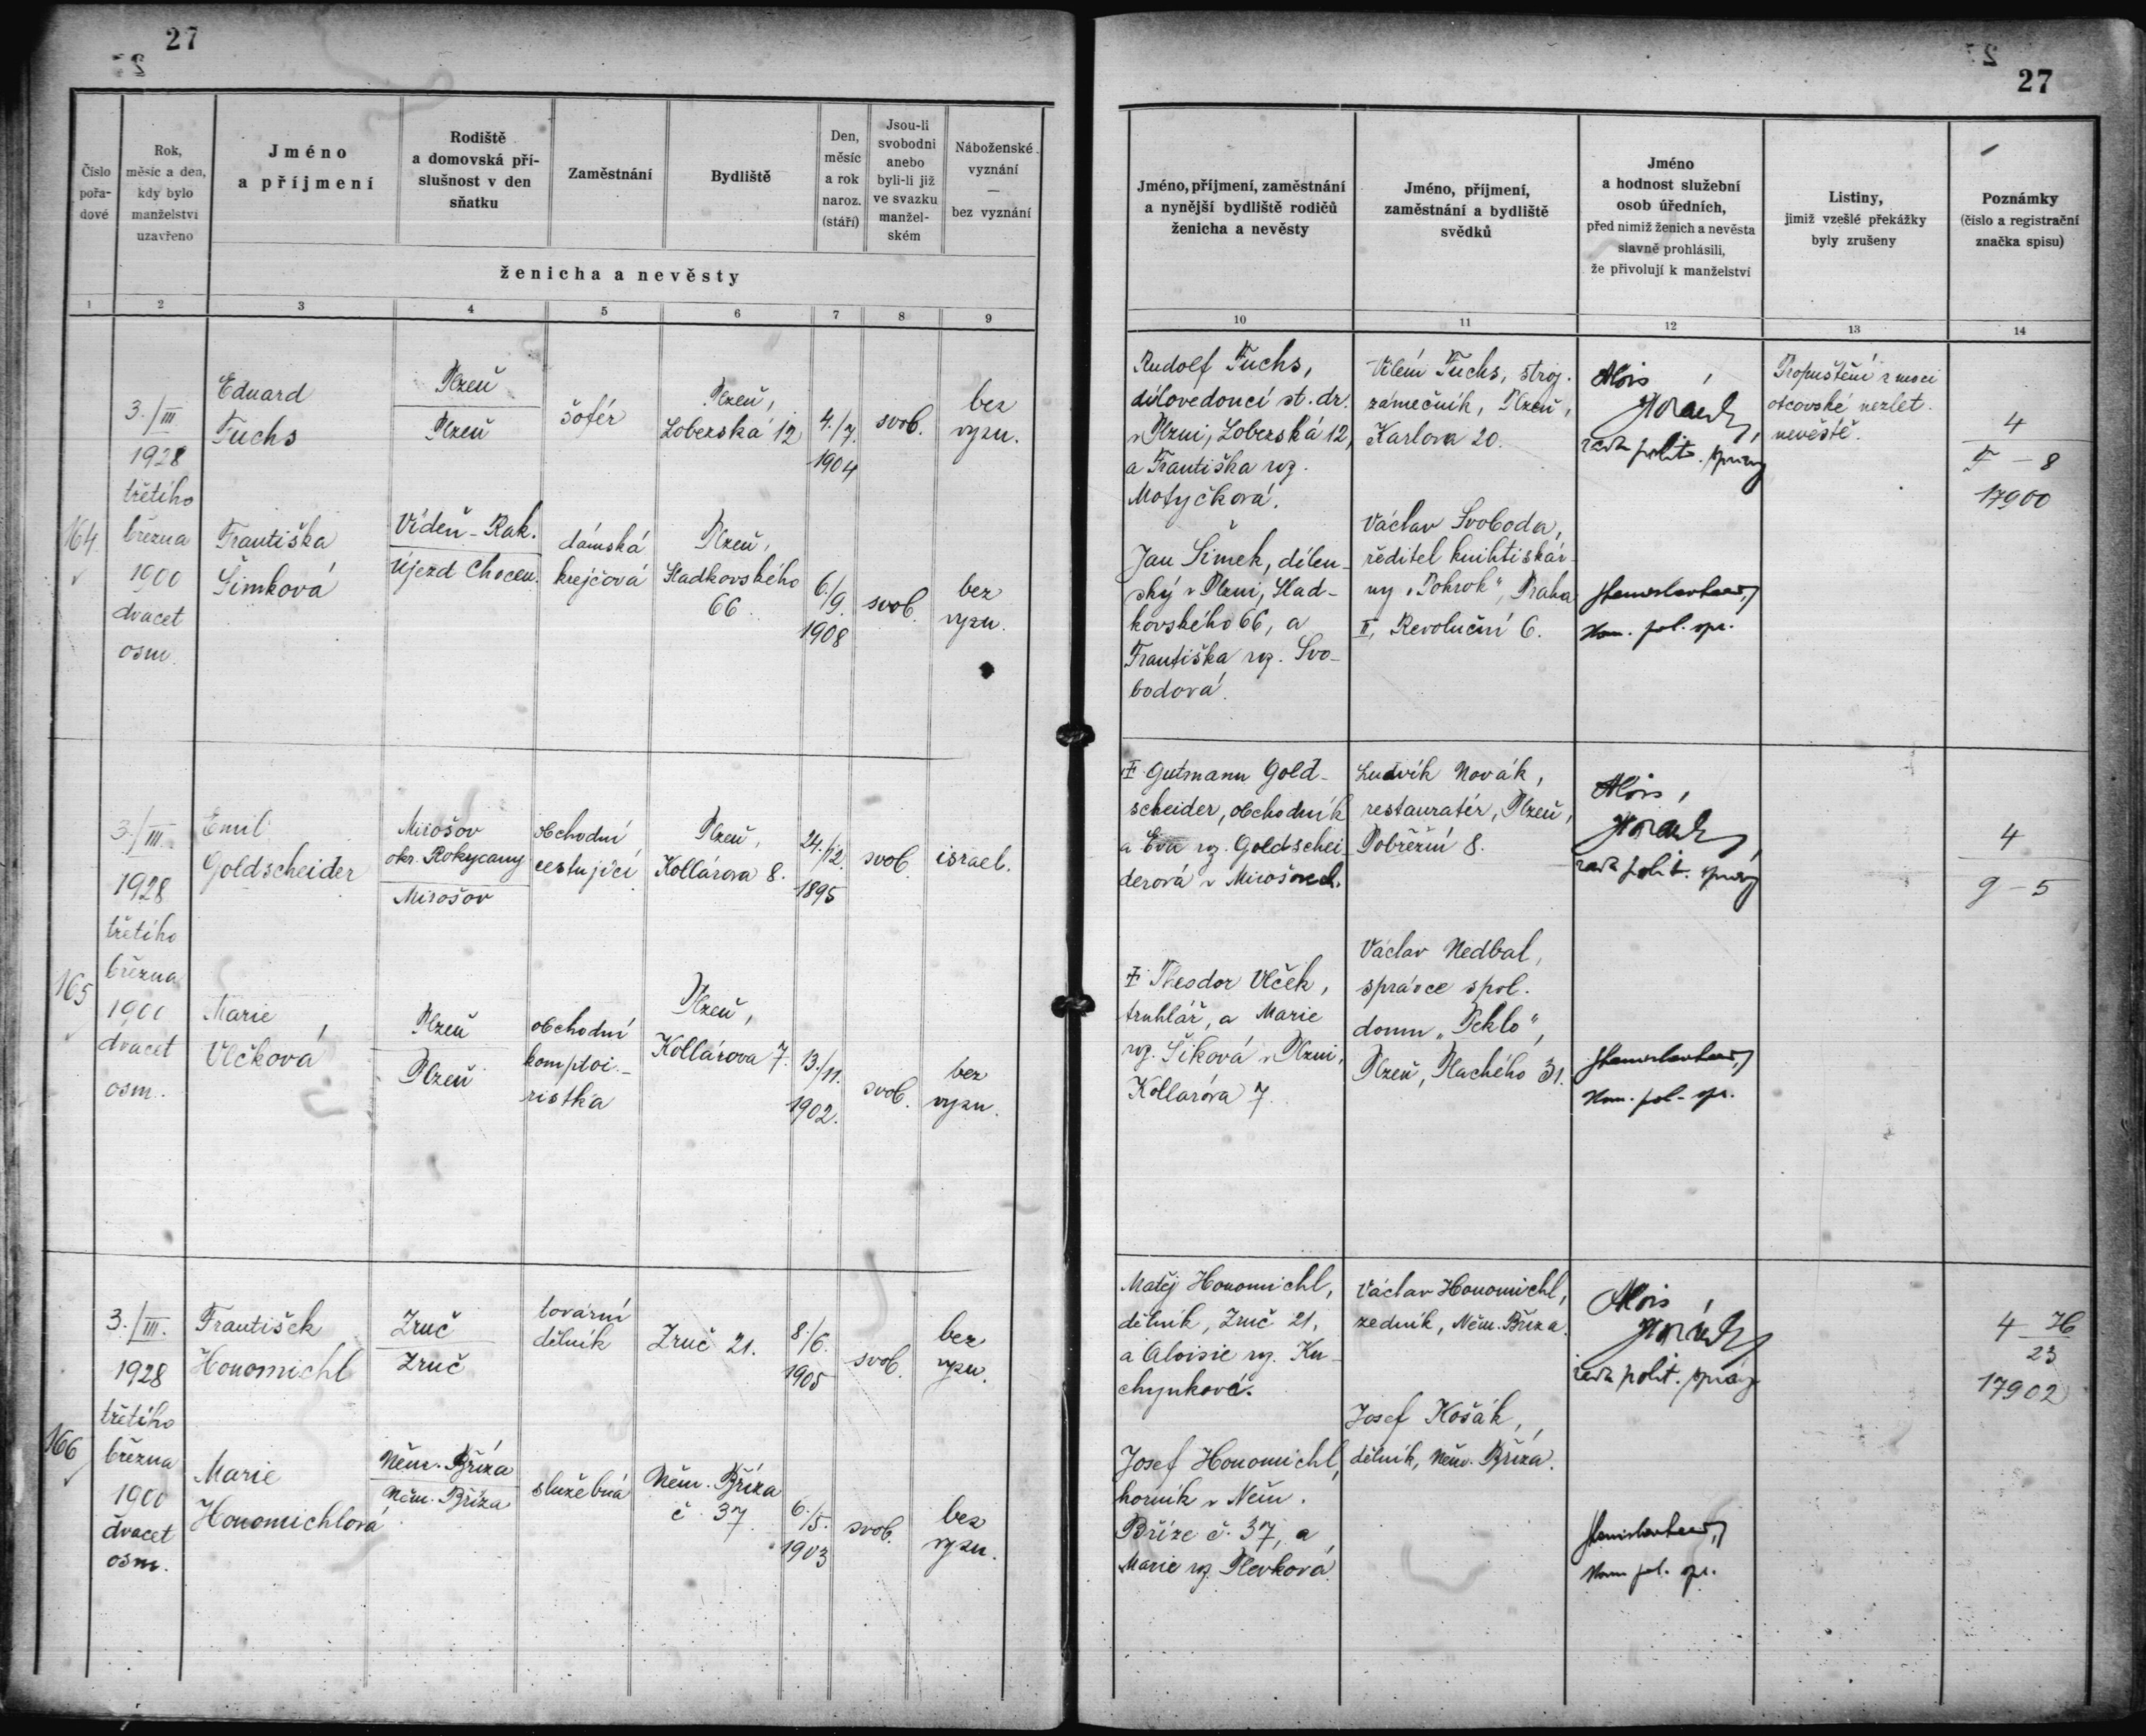 27
27
Číslo
pořa-
dové
Rok,
měsíc a den,
kdy bylo
manželství
uzavřeno
Jméno
a příjmení
Rodiště
a domovská pří-
slušnost v den
sňatku
Zaměstnání
Bydliště
Den,
měsíc
a rok
naroz.
(stáří)
Jsou-li
svobodni
anebo
byli-li již
ve svazku
manžel-
ském
Náboženské
vyznání
—
bez vyznání
ženicha a nevěsty
Jméno, příjmení, zaměstnání
a nynější bydliště rodičů
ženicha a nevěsty
Jméno, příjmení,
zaměstnání a bydliště
svědků
Jméno
a hodnost služební
osob úředních,
před nimiž ženich a nevěsta
slavně prohlásili,
že přivolují k manželství
Listiny,
jimiž vzešlé překážky
byly zrušeny
Poznámky
(číslo a registrační
značka spisu)
1 2 3 4 5 6 7 8 9 10 11 12 13 14
164
3./III.
1928
třetího
března
1900
dvacet
osm.
Eduard
Fuchs
Plzeň
Plzeň
šofér
Plzeň,
Lobezská 12
4./7.
1904
svob.
bez
vyzn.
Františka
Šimková
Vídeň - Rak.
Újezd Chocen.
dámská
krejčová
Plzeň,
Sladkovského
66.
6./9.
1908
svob.
bez
vyzn.
Rudolf Fuchs,
dílovedoucí st. dr.
v Plzni, Lobezská 12,
a Františka roz.
Motyčková.
Jan Šimek, dílen-
ský v Plzni, Slad-
kovského 66, a
Františka roz. Svo-
bodová.
Vilém Fuchs, stroj.
zámečník, Plzeň,
Karlova 20.
Václav Svoboda,
ředitel knihtiskár-
ny „Pokrok“, Praha
II, Revoluční 6.
Alois
Horák,
rada polit. správy
kom. pol. spr.
Propuštění z moci
otcovské nezlet.
nevěstě.
4
F - 8
17900
165
3./III.
1928
třetího
března
1900
dvacet
osm.
Emil
Goldscheider
Mirošov
okr. Rokycany
Mirošov
obchodní
cestující
Plzeň,
Kollárova 8.
24./12.
1895
svob.
israel.
Marie
Vlčková
Plzeň
Plzeň
obchodní
komptoi-
ristka
Plzeň,
Kollárova 7.
13./11.
1902.
svob.
bez
vyzn.
‡ Gutmann Gold-
scheider, obchodník
a Eva roz. Goldschei-
derová v Mirošově.
‡ Theodor Vlček,
truhlář, a Marie
roz. Šiková v Plzni,
Kollárova 7.
Ludvík Novák,
restauratér, Plzeň,
Pobřežní 8.
Václav Nedbal,
správce spol.
domu „Peklo“,
Plzeň, Plachého 31.
Alois
Horák,
rada polit. správy
kom. pol. spr.
4
g - 5
166
3./III.
1928
třetího
března
1900
dvacet
osm.
František
Honomichl
Zruč
Zruč
tovární
dělník
Zruč 21.
8./6.
1905
svob.
bez
vyzn.
Marie
Honomichlová
Něm. Bříza
Něm. Bříza
služebná
Něm. Bříza
č. 37.
6./5.
1903
svob.
bez
vyzn.
Matěj Honomichl,
dělník, Zruč 21,
a Aloisie roz. Ku-
chynková.
Josef Honomichl,
horník v Něm.
Bříze č. 37, a
Marie roz. Plevková.
Václav Honomichl,
zedník, Něm. Bříza.
Josef Košák,
dělník, Něm. Bříza.
Alois
Horák,
rada polit. správy
kom. pol. spr.
4 - H
23
17902